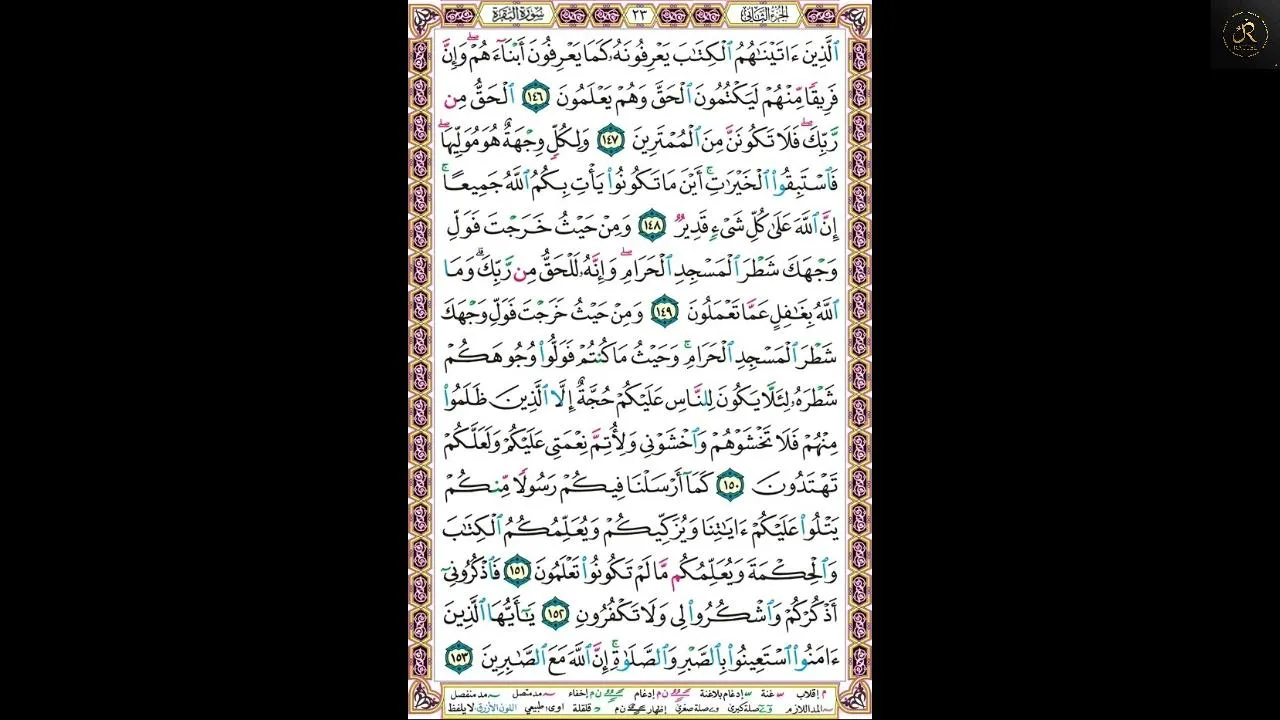 الجزء الثاني ٢٣ سورة البقرة
ٱلَّذِينَ ءَاتَيْنَٰهُمُ ٱلْكِتَٰبَ يَعْرِفُونَهُۥ كَمَا يَعْرِفُونَ أَبْنَآءَهُمْ ۖ وَإِنَّ
فَرِيقًا مِّنْهُمْ لَيَكْتُمُونَ ٱلْحَقَّ وَهُمْ يَعْلَمُونَ ١٤٦ ٱلْحَقُّ مِن
رَّبِّكَ ۖ فَلَا تَكُونَنَّ مِنَ ٱلْمُمْتَرِينَ ١٤٧ وَلِكُلٍّ وِجْهَةٌ هُوَ مُوَلِّيهَا ۖ
فَٱسْتَبِقُوا۟ ٱلْخَيْرَٰتِ ۚ أَيْنَ مَا تَكُونُوا۟ يَأْتِ بِكُمُ ٱللَّهُ جَمِيعًا ۚ
إِنَّ ٱللَّهَ عَلَىٰ كُلِّ شَىْءٍ قَدِيرٌ ١٤٨ وَمِنْ حَيْثُ خَرَجْتَ فَوَلِّ
وَجْهَكَ شَطْرَ ٱلْمَسْجِدِ ٱلْحَرَامِ ۖ وَإِنَّهُۥ لَلْحَقُّ مِن رَّبِّكَ ۗ وَمَا
ٱللَّهُ بِغَٰفِلٍ عَمَّا تَعْمَلُونَ ١٤٩ وَمِنْ حَيْثُ خَرَجْتَ فَوَلِّ وَجْهَكَ
شَطْرَ ٱلْمَسْجِدِ ٱلْحَرَامِ ۚ وَحَيْثُ مَا كُنتُمْ فَوَلُّوا۟ وُجُوهَكُمْ
شَطْرَهُۥ لِئَلَّا يَكُونَ لِلنَّاسِ عَلَيْكُمْ حُجَّةٌ إِلَّا ٱلَّذِينَ ظَلَمُوا۟
مِنْهُمْ فَلَا تَخْشَوْهُمْ وَٱخْشَوْنِى وَلِأُتِمَّ نِعْمَتِى عَلَيْكُمْ وَلَعَلَّكُمْ
تَهْتَدُونَ ١٥٠ كَمَآ أَرْسَلْنَا فِيكُمْ رَسُولًا مِّنكُمْ
يَتْلُوا۟ عَلَيْكُمْ ءَايَٰتِنَا وَيُزَكِّيكُمْ وَيُعَلِّمُكُمُ ٱلْكِتَٰبَ
وَٱلْحِكْمَةَ وَيُعَلِّمُكُم مَّا لَمْ تَكُونُوا۟ تَعْلَمُونَ ١٥١ فَٱذْكُرُونِىٓ
أَذْكُرْكُمْ وَٱشْكُرُوا۟ لِى وَلَا تَكْفُرُونِ ١٥٢ يَٰٓأَيُّهَا ٱلَّذِينَ
ءَامَنُوا۟ ٱسْتَعِينُوا۟ بِٱلصَّبْرِ وَٱلصَّلَوٰةِ ۚ إِنَّ ٱللَّهَ مَعَ ٱلصَّٰبِرِينَ ١٥٣
م إقلاب غنة إدغام بلاغنة ن م إدغام ن م إخفاء مد متصل مد منفصل
المد اللازم صلة كبرى صلة صغرى إظهار ن م قلقلة اوى طبيعي اللون الأزرق لا يلفظ